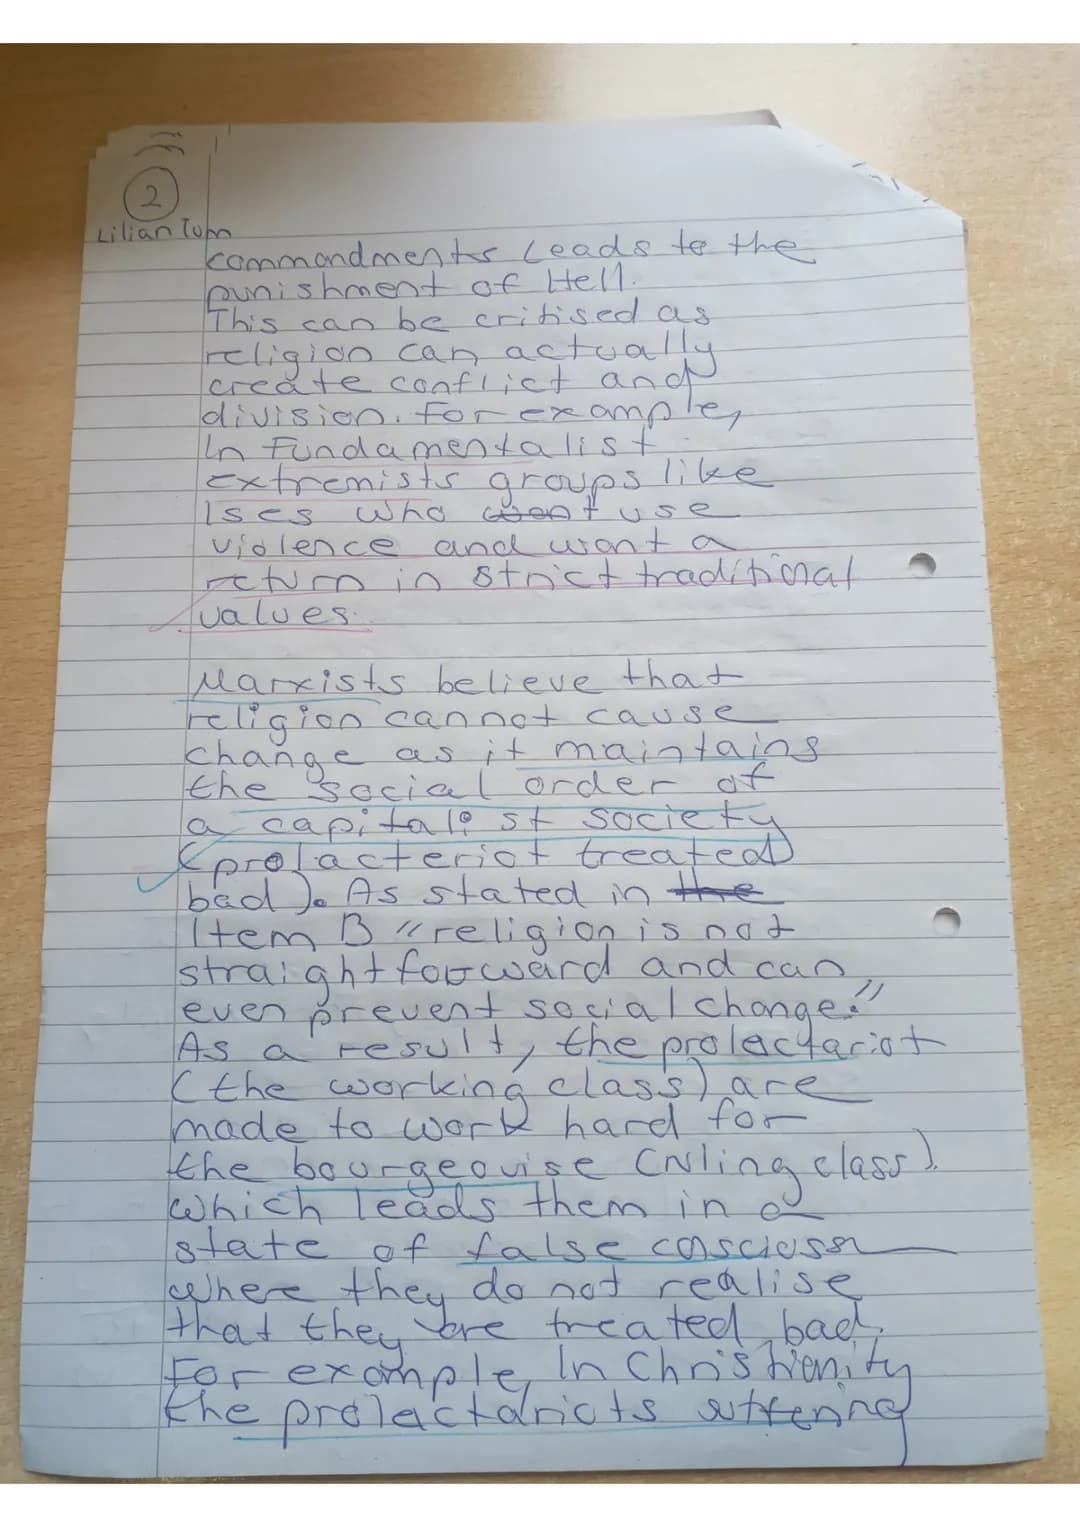 2
Lilian Tum
commandments leads to the
punishment of Hell.
This can be critised as
religion can actually
create conflict and
division. For example,
In Fundamentalist
extremists groups like
Ises who want use
violence and want a
return in strict traditional
values.
Marxists believe that
religion cannot cause
change as it maintains
the social order of
a capitalist society
(prolacteriot treated
bad). As stated in the
Item B "religion is not
straightforward and can
even prevent social change."
As a result, the prolectariot
(the working class) are
made to work hard for
the bourgeouise (ruling class).
which leads them in a
state of false conscioussn
where they do not realise
that they are treated bad.
For example, In Christianity
the prolectariots suffering